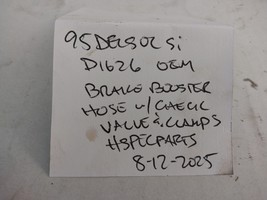 95 DELSOL Si
D1626 OEM
BRAKE BOOSTER
HOSE w/ CHECK
VALVE & CLAMPS
HSPECPARTS
8-12-2025